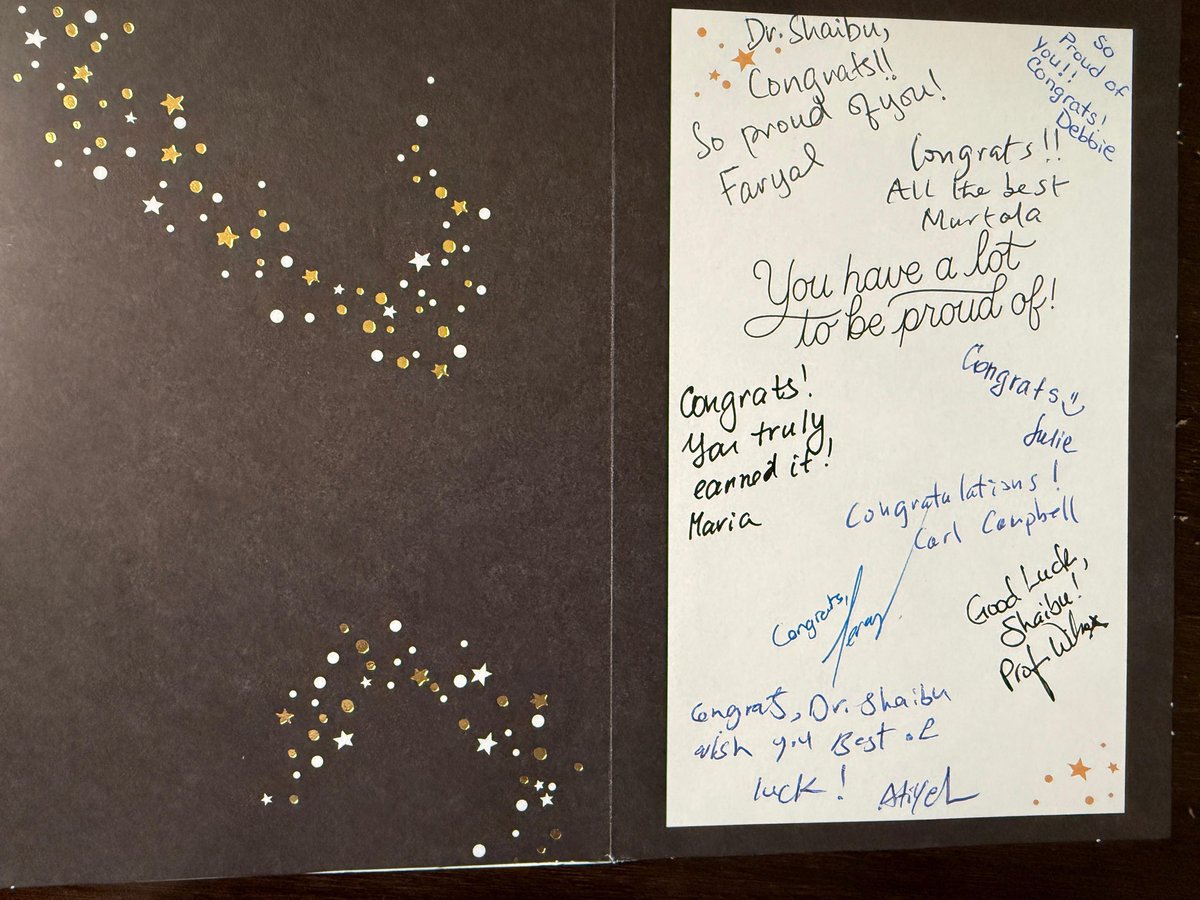 Dr. Shaibu,
Congrats!!
So proud of you!
Faryal
So
Proud of
You!!
Congrats!
Debbie
Congrats!!
All the best
Murtala
You have a lot
to be proud of!
Congrats!
You truly
earned it!
Maria
Congrats
Julie
Congratulations!
Carl Campbell
Congrats,
Good Luck,
Shaibu!
Prof.
Congrats, Dr. Shaibu
wish you Best of
luck! Atiyeh